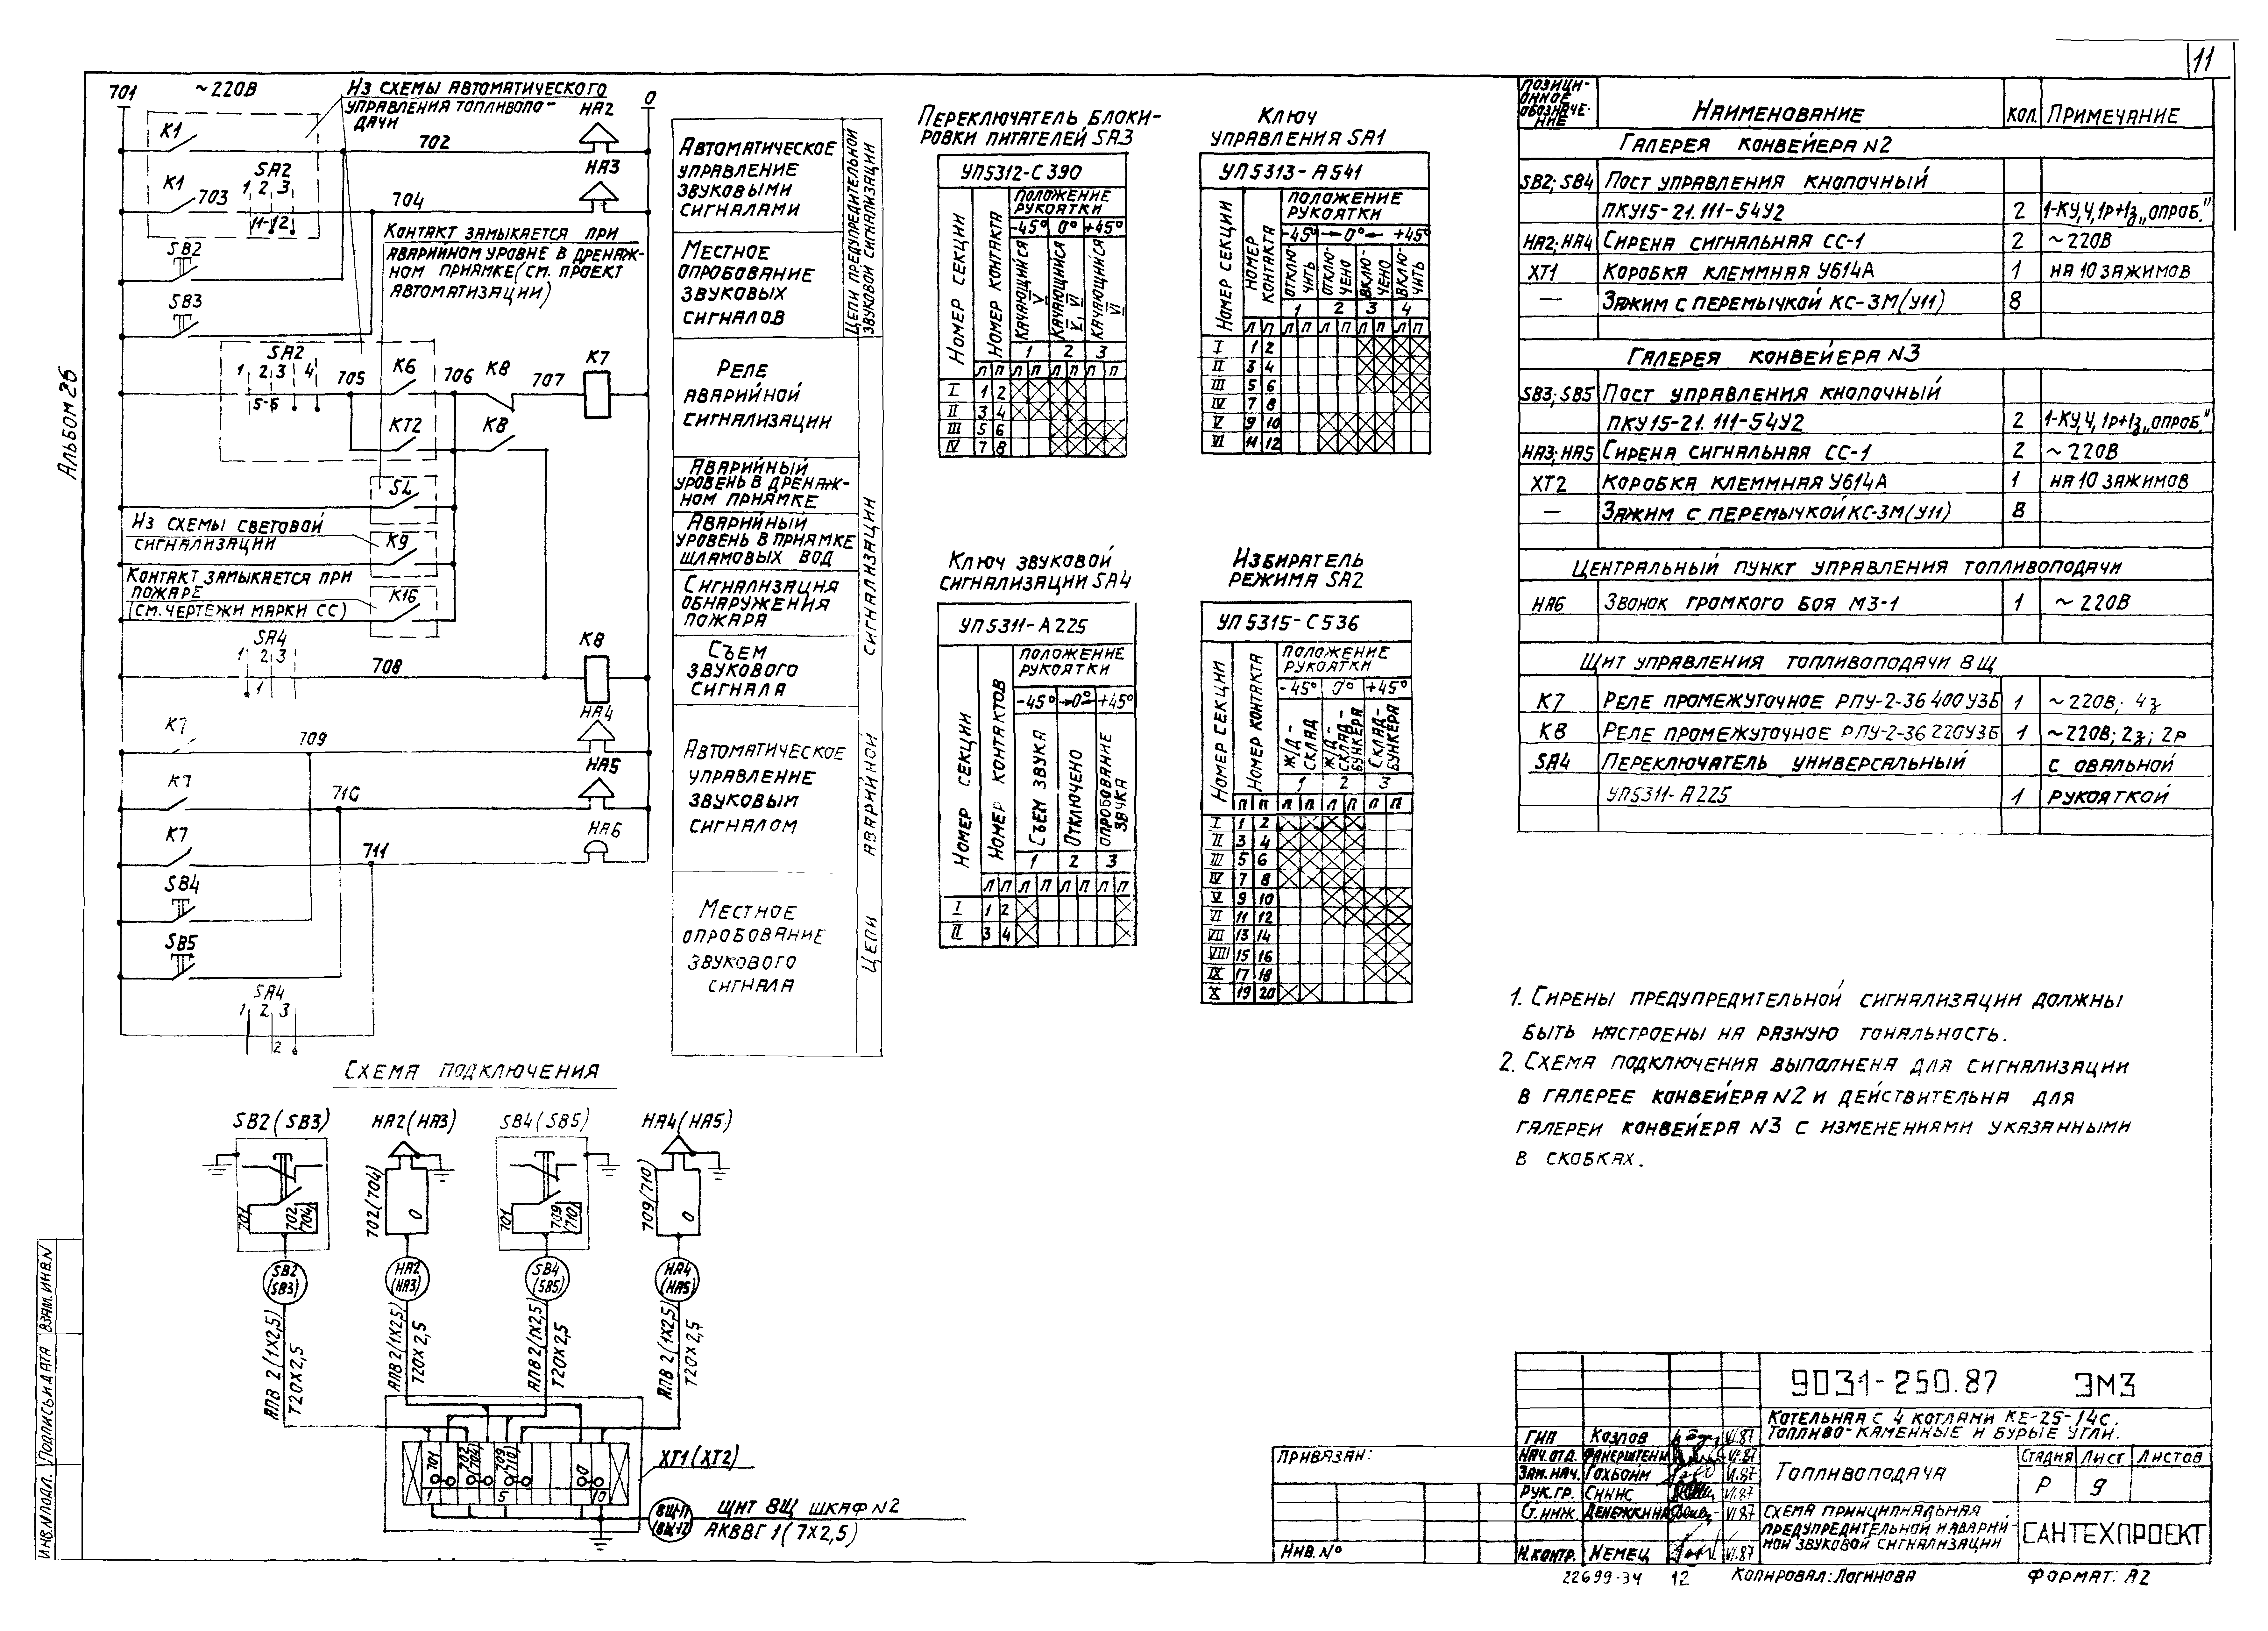 11
Альбом 2б
701
~220В
Из схемы автоматического
управления топливопо-
дачи
0
К1
702
НА2
К1
703
SA2
1 2 3
11-12
704
НА3
SB2
Контакт замыкается при
аварийном уровне в дренаж-
ном приямке (см. проект
автоматизации)
SB3
SA2
1 2 3 4
5-6
705
К6
706
К8
707
К7
КТ2
К8
SL
Из схемы световой
сигнализации
К9
Контакт замыкается при
пожаре
(см. чертежи марки СС)
К16
SA4
1 2 3
1
708
К8
К7
709
НА4
К7
710
НА5
К7
711
НА6
SB4
SB5
SA4
1 2 3
2
Автоматическое
управление
звуковыми
сигналами
Местное
опробование
звуковых
сигналов
Цепи предупредительной
звуковой сигнализации
Реле
аварийной
сигнализации
Аварийный
уровень в дренаж-
ном приямке
Аварийный
уровень в приямке
шламовых вод
Сигнализация
обнаружения
пожара
Съем
звукового
сигнала
Автоматическое
управление
звуковым
сигналом
Местное
опробование
звукового
сигнала
Цепи аварийной сигнализации
Переключатель блоки-
ровки питателей SA3
УП5312-С390
Номер секции
Номер контакта
Положение
рукоятки
-45° 0° +45°
Качающийся V
Качающийся V, VI
Качающийся VI
1 2 3
Л П Л П Л П Л П
I 1 2
II 3 4
III 5 6
IV 7 8
Ключ
управления SA1
УП5313-А541
Номер секции
Номер контакта
Положение
рукоятки
-45° 0° +45°
Отклю-
чить
Отклю-
чено
Вклю-
чено
Вклю-
чить
1 2 3 4
Л П Л П Л П Л П Л П
I 1 2
II 3 4
III 5 6
IV 7 8
V 9 10
VI 11 12
Ключ звуковой
сигнализации SA4
УП5311-А225
Номер секции
Номер контактов
Положение
рукоятки
-45° 0° +45°
Съем звука
Отключено
Опробование
звука
1 2 3
Л П Л П Л П Л П
I 1 2
II 3 4
Избиратель
режима SA2
УП5315-С536
Номер секции
Номер контакта
Положение
рукоятки
-45° 0° +45°
Ж/Д -
склад
Ж/Д -
склад -
бункера
Склад -
бункера
1 2 3
Л П Л П Л П Л П
I 1 2
II 3 4
III 5 6
IV 7 8
V 9 10
VI 11 12
VII 13 14
VIII 15 16
IX 17 18
X 19 20
Позици-
онное
обозначе-
ние
Наименование
Кол.
Примечание
Галерея конвейера N2
SB2; SB4 Пост управления кнопочный
ПКУ15-21.111-54У2 2 1-КУ, Ч, 1р+1з „опроб."
НА2; НА4 Сирена сигнальная СС-1 2 ~220В
ХТ1 Коробка клеммная У614А 1 на 10 зажимов
— Зажим с перемычкой КС-3М (У11) 8
Галерея конвейера N3
SB3; SB5 Пост управления кнопочный
ПКУ15-21.111-54У2 2 1-КУ, Ч, 1р+1з „опроб."
НА3; НА5 Сирена сигнальная СС-1 2 ~220В
ХТ2 Коробка клеммная У614А 1 на 10 зажимов
— Зажим с перемычкой КС-3М (У11) 8
Центральный пункт управления топливоподачи
НА6 Звонок громкого боя МЗ-1 1 ~220В
Щит управления топливоподачи 8Щ
К7 Реле промежуточное РПУ-2-36400У3Б 1 ~220В; 4з
К8 Реле промежуточное РПУ-2-36220У3Б 1 ~220В; 2з; 2р
SA4 Переключатель универсальный с овальной
УП5311-А225 1 рукояткой
1. Сирены предупредительной сигнализации должны
быть настроены на разную тональность.
2. Схема подключения выполнена для сигнализации
в галерее конвейера N2 и действительна для
галереи конвейера N3 с изменениями указанными
в скобках.
Схема подключения
SB2 (SB3)
НА2 (НА3)
SB4 (SB5)
НА4 (НА5)
701
702
(704)
702 (704)
0
701
709
(710)
709 (710)
0
SB2
(SB3)
НА2
(НА3)
SB4
(SB5)
НА4
(НА5)
АПВ 2 (1х2,5)
Т20х2,5
АПВ 2 (1х2,5)
Т20х2,5
АПВ 2 (1х2,5)
Т20х2,5
АПВ 2 (1х2,5)
Т20х2,5
701
702
(704)
709
(710)
0
1 5 10
ХТ1 (ХТ2)
8Щ-11
(8Щ-12)
Щит 8Щ шкаф N2
АКВВГ 1 (7х2,5)
Инв.N подл. Подпись и дата Взам. инв.N
Привязан:
Инв. N°
ГИП Козлов VI.87
Нач. отд. Фанерштейн VI.87
Зам. нач. Гохбойм VI.87
Рук. гр. VI.87
Ст. инж. Денежкина VI.87
Н. контр. Немец VI.87
9031-250.87 ЭМ3
Котельная с 4 котлами КЕ-25-14С.
Топливо-каменные и бурые угли.
Топливоподача
Стадия Лист Листов
Р 9
Схема принципиальная
предупредительной и аварий-
ной звуковой сигнализации
САНТЕХПРОЕКТ
22699-34 12
Копировал: Логинова
Формат: А2